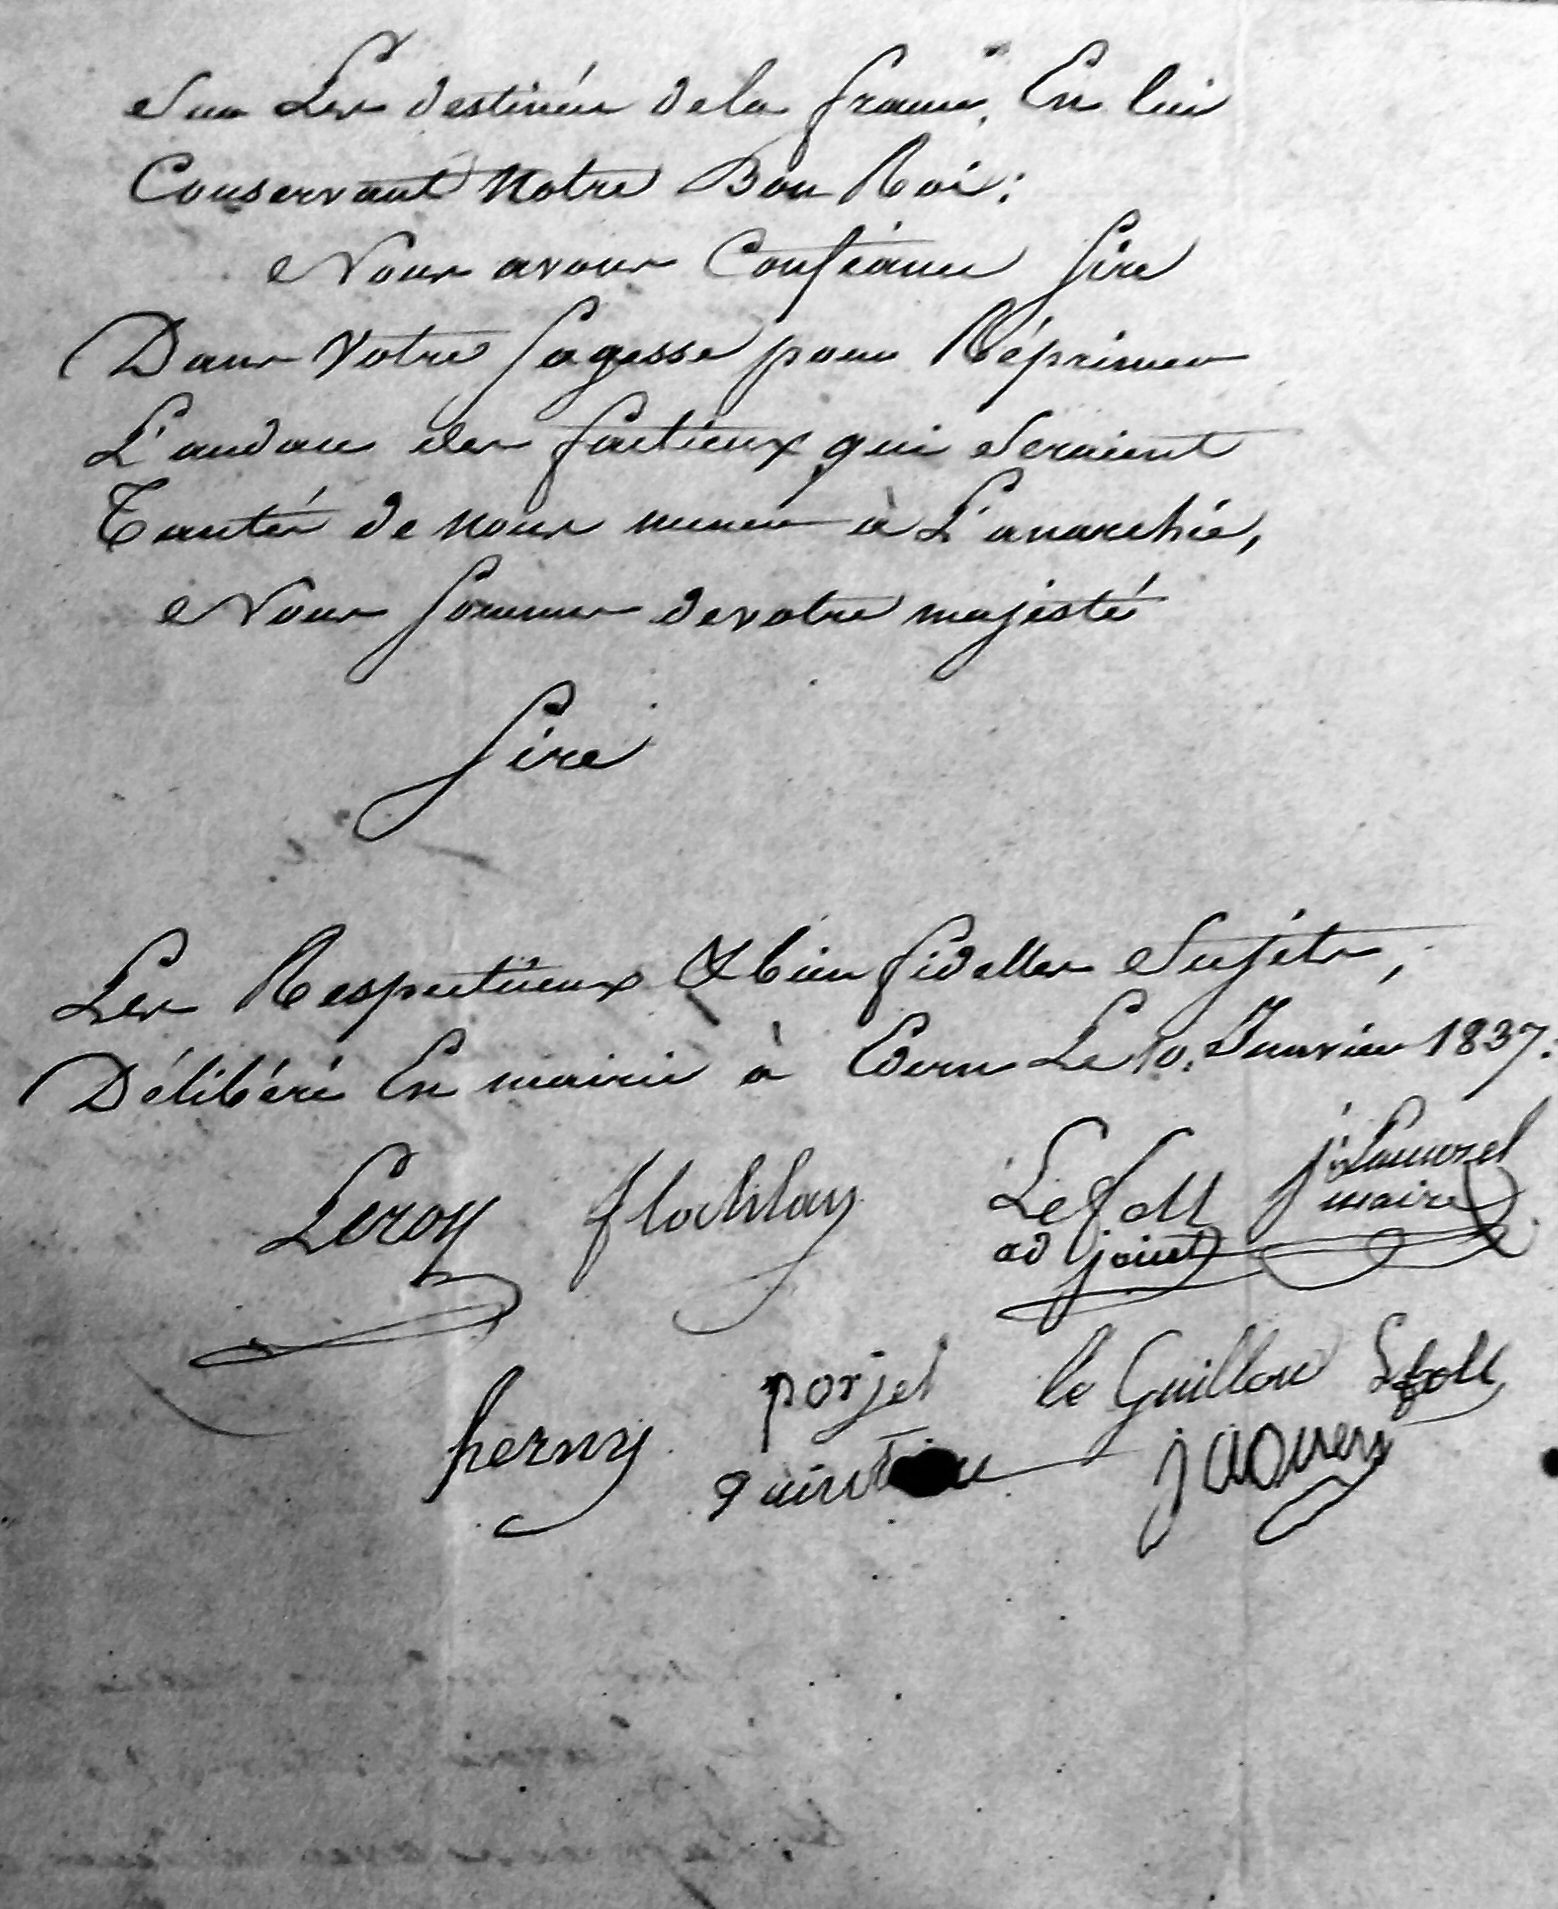 Sur Les destinées de la france, En lui
Conservant Notre Bon Roi;
Nous avons Confiance Sire
Dans Votre Sagesse pour Réprimer
L'audace des factieux qui Seraient
Tantés de nous mener à L'anarchie,
Nous Sommes de votre majesté
Sire
Les Respectueux & bien fidelles Sujets,
Délibéré En mairie à Edern Le 10. Janvier 1837:
Leroy flochlay Le foll
adjoint maire
porjet le Guillou Lefoll
herny quintin jaouen